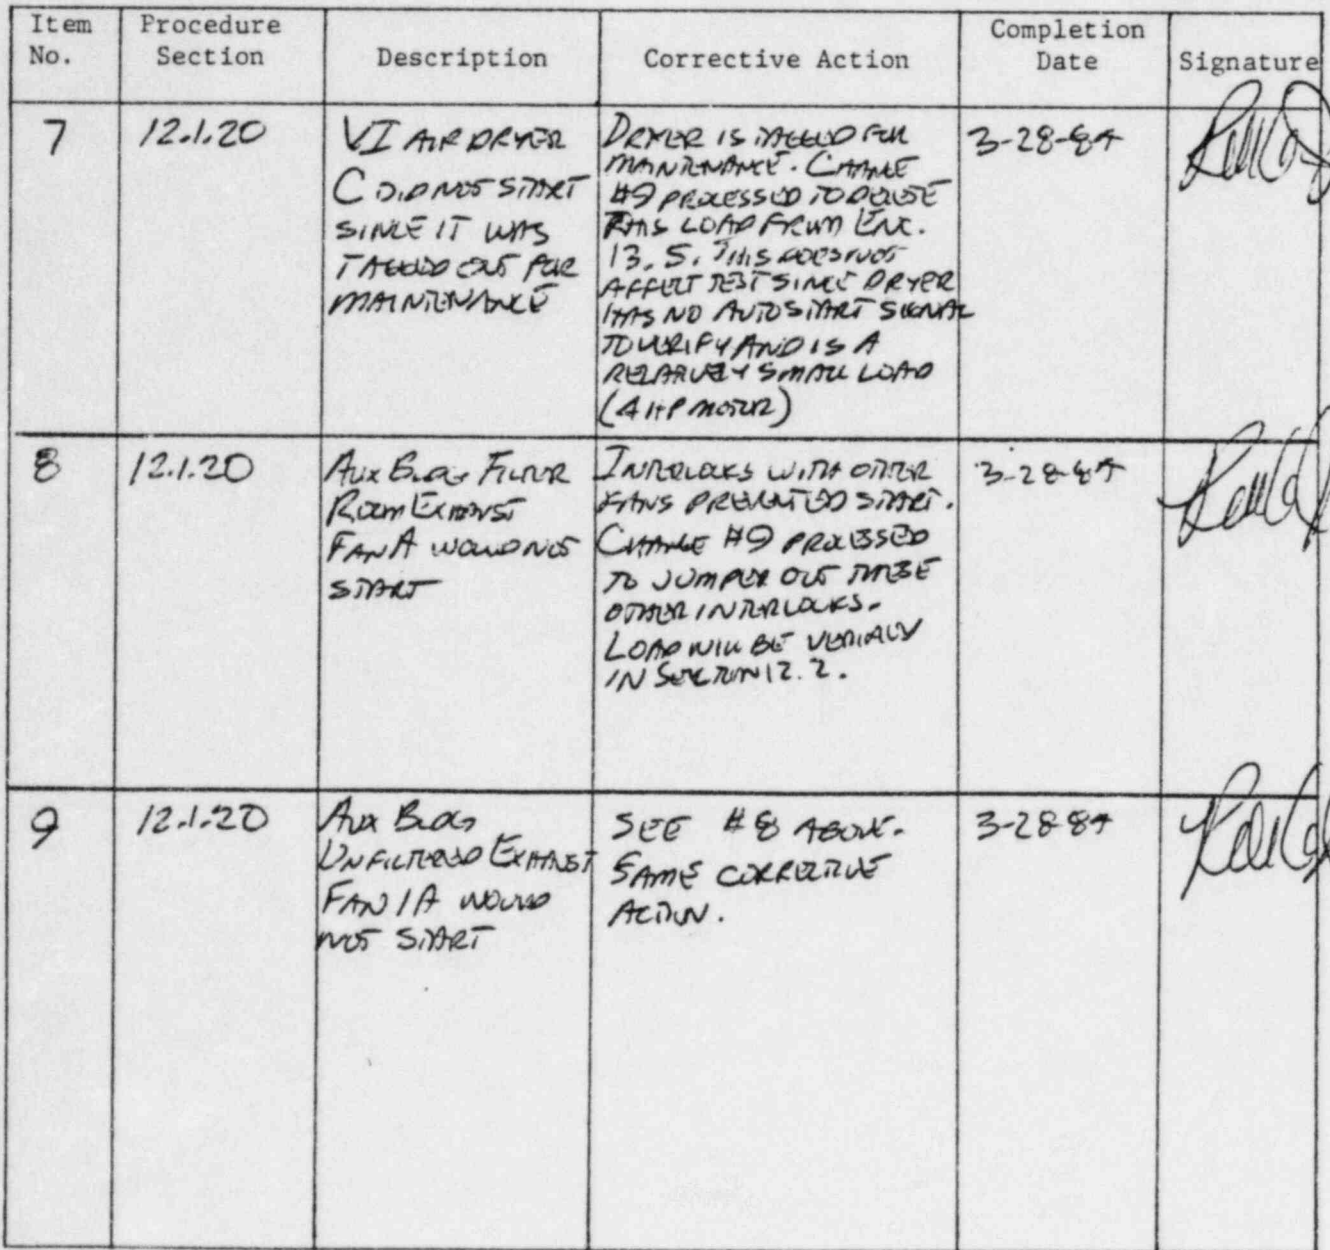 Item No.
Procedure Section
Description
Corrective Action
Completion Date
Signature
7
12.1.20
VI AIR DRYER
C DID NOT START
SINCE IT WAS
TAGGED OUT FOR
MAINTENANCE
DRYER IS TAGGED FOR
MAINTENANCE. CHANGE
#9 PROCESSED TO DELETE
THIS LOAD FROM ENC.
13.5. THIS DOES NOT
AFFECT TEST SINCE DRYER
HAS NO AUTOSTART SIGNAL
TO VERIFY AND IS A
RELATIVELY SMALL LOAD
(4 HP MOTOR)
3-28-84
8
12.1.20
AUX BLDG FILTER
ROOM EXHAUST
FAN A WOULD NOT
START
INTERLOCKS WITH OTHER
FANS PREVENTED START.
CHANGE #9 PROCESSED
TO JUMPER OUT THESE
OTHER INTERLOCKS.
LOAD WILL BE
IN SECTION 12.2.
3-28-84
9
12.1.20
AUX BLDG
UNFILTERED EXHAUST
FAN 1A WOULD
NOT START
SEE #8 ABOVE.
SAME CORRECTIVE
ACTION.
3-28-84